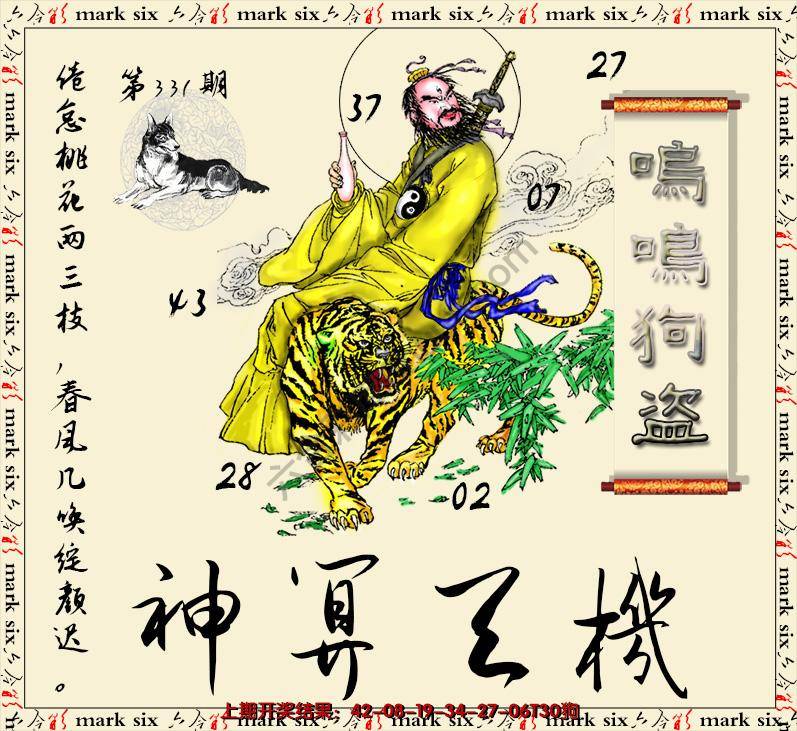 mark six
第331期
倦怠桃花两三枝，春风几唤绽颜迟。
37
27
07
43
28
02
鳴鳴狗盗
神算天機
上期开奖结果：42-08-19-34-27-06T30狗